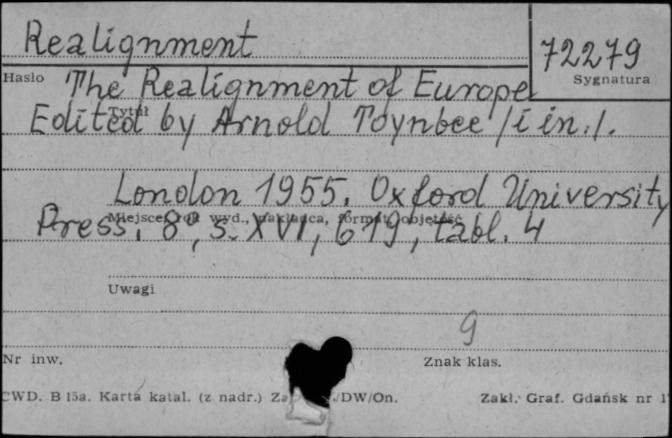 Realignment
72279
Hasło
Sygnatura
The Realignment of Europe
Tytuł
Edited by Arnold Toynbee /i in./.
London 1955. Oxford University
Miejsce, rok wyd., nakładca, format, objętość
Press, 8°, s. XVI, 619, tabl. 4
Uwagi
9
Nr inw.
Znak klas.
CWD. B 15a. Karta katal. (z nadr.) DW/On.
Zakł. Graf. Gdańsk nr